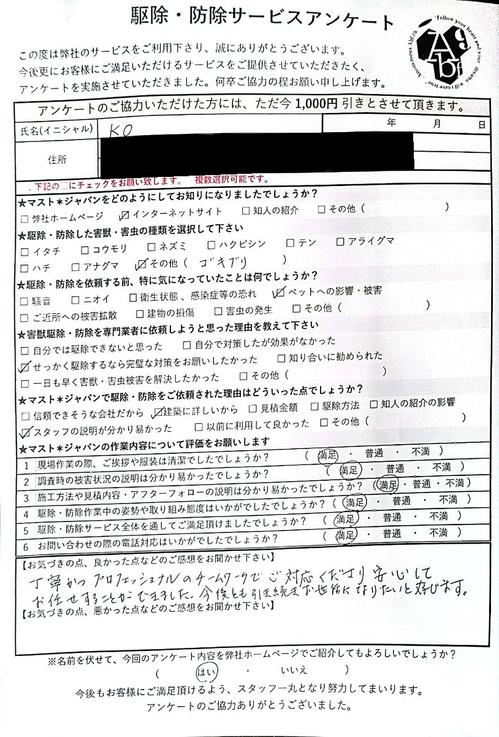 駆除・防除サービスアンケート
この度は弊社のサービスをご利用下さり、誠にありがとうございます。
今後更にお客様にご満足いただけるサービスをご提供させていただきたく、
アンケートを実施させていただきました。何卒ご協力の程お願い申し上げます。
アンケートのご協力いただけた方には、ただ今1,000円引きとさせて頂きます。
氏名(イニシャル) KO 年 月 日
住所
．下記の□にチェックをお願い致します。 複数選択可能です。
★マスト＊ジャパンをどのようにしてお知りになりましたでしょうか？
□ 弊社ホームページ ☑ インターネットサイト □ 知人の紹介 □ その他（ ）
★駆除・防除した害獣・害虫の種類を選択して下さい
□ イタチ □ コウモリ □ ネズミ □ ハクビシン □ テン □ アライグマ
□ ハチ □ アナグマ ☑ その他（ ゴキブリ ）
★駆除・防除を依頼する前、特に気になっていたことは何でしょうか？
□ 騒音 □ ニオイ □ 衛生状態、感染症等の恐れ ☑ ペットへの影響・被害
□ ご近所への被害拡散 □ 建物の損傷 □ 害虫の発生 □ その他（ ）
★害獣駆除・防除を専門業者に依頼しようと思った理由を教えて下さい
□ 自分では駆除できないと思った □ 自分で対策したが効果がなかった
☑ せっかく駆除するなら完璧な対策をお願いしたかった □ 知り合いに勧められた
□ 一日も早く害獣・害虫被害を解決したかった □ その他（ ）
★マスト＊ジャパンで駆除・防除をご依頼された理由はどういった点でしょうか？
□ 信頼できそうな会社だから ☑ 建築に詳しいから □ 見積金額 □ 駆除方法 □ 知人の紹介の影響
☑ スタッフの説明が分かり易かった □ 以前に利用して良かった □ その他（ ）
★マスト＊ジャパンの作業内容について評価をお願いします
1 現場作業の際、ご挨拶や服装は清潔でしたでしょうか？ （ 満足 ・ 普通 ・ 不満 ）
2 調査時の被害状況の説明は分かり易かったでしょうか？ （ 満足 ・ 普通 ・ 不満 ）
3 施工方法や見積内容・アフターフォローの説明は分かり易かったでしょうか？ （ 満足 ・ 普通 ・ 不満 ）
4 駆除・防除作業中の姿勢や取り組み態度はいかがでしたでしょうか？ （ 満足 ・ 普通 ・ 不満 ）
5 駆除・防除サービス全体を通してご満足頂けましたでしょうか？ （ 満足 ・ 普通 ・ 不満 ）
6 お問い合わせの際の電話対応はいかがでしたでしょうか？ （ 満足 ・ 普通 ・ 不満 ）
【お気づきの点、良かった点などのご感想をお聞かせ下さい】
丁寧かつプロフェッショナルのチームワークでご対応くださり安心して
お任せすることができました。今後とも引き続きお世話になりたいと存じます。
【お気づきの点、悪かった点などのご感想をお聞かせ下さい】
※名前を伏せて、今回のアンケート内容を弊社ホームページでご紹介してもよろしいでしょうか？
（ はい ・ いいえ ）
今後もお客様にご満足頂けるよう、スタッフ一丸となり努力してまいります。
アンケートのご協力ありがとうございました。